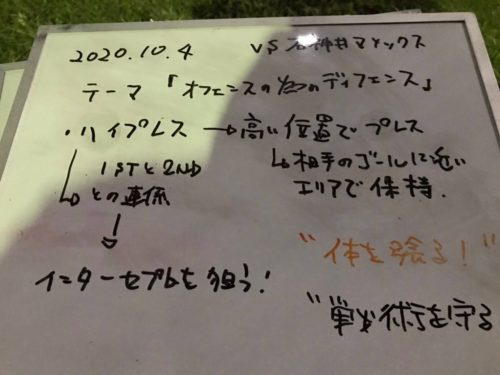 2020.10.4 VS 石神井マメックス
テーマ 「オフェンスの為のディフェンス」
・ハイプレス → 高い位置でプレス
↳ 相手のゴールに近い
エリアで保持.
1STと2ND
↳ との連係
⇩
インターセプトを狙う!
"体を張る!"
"戦術を守る